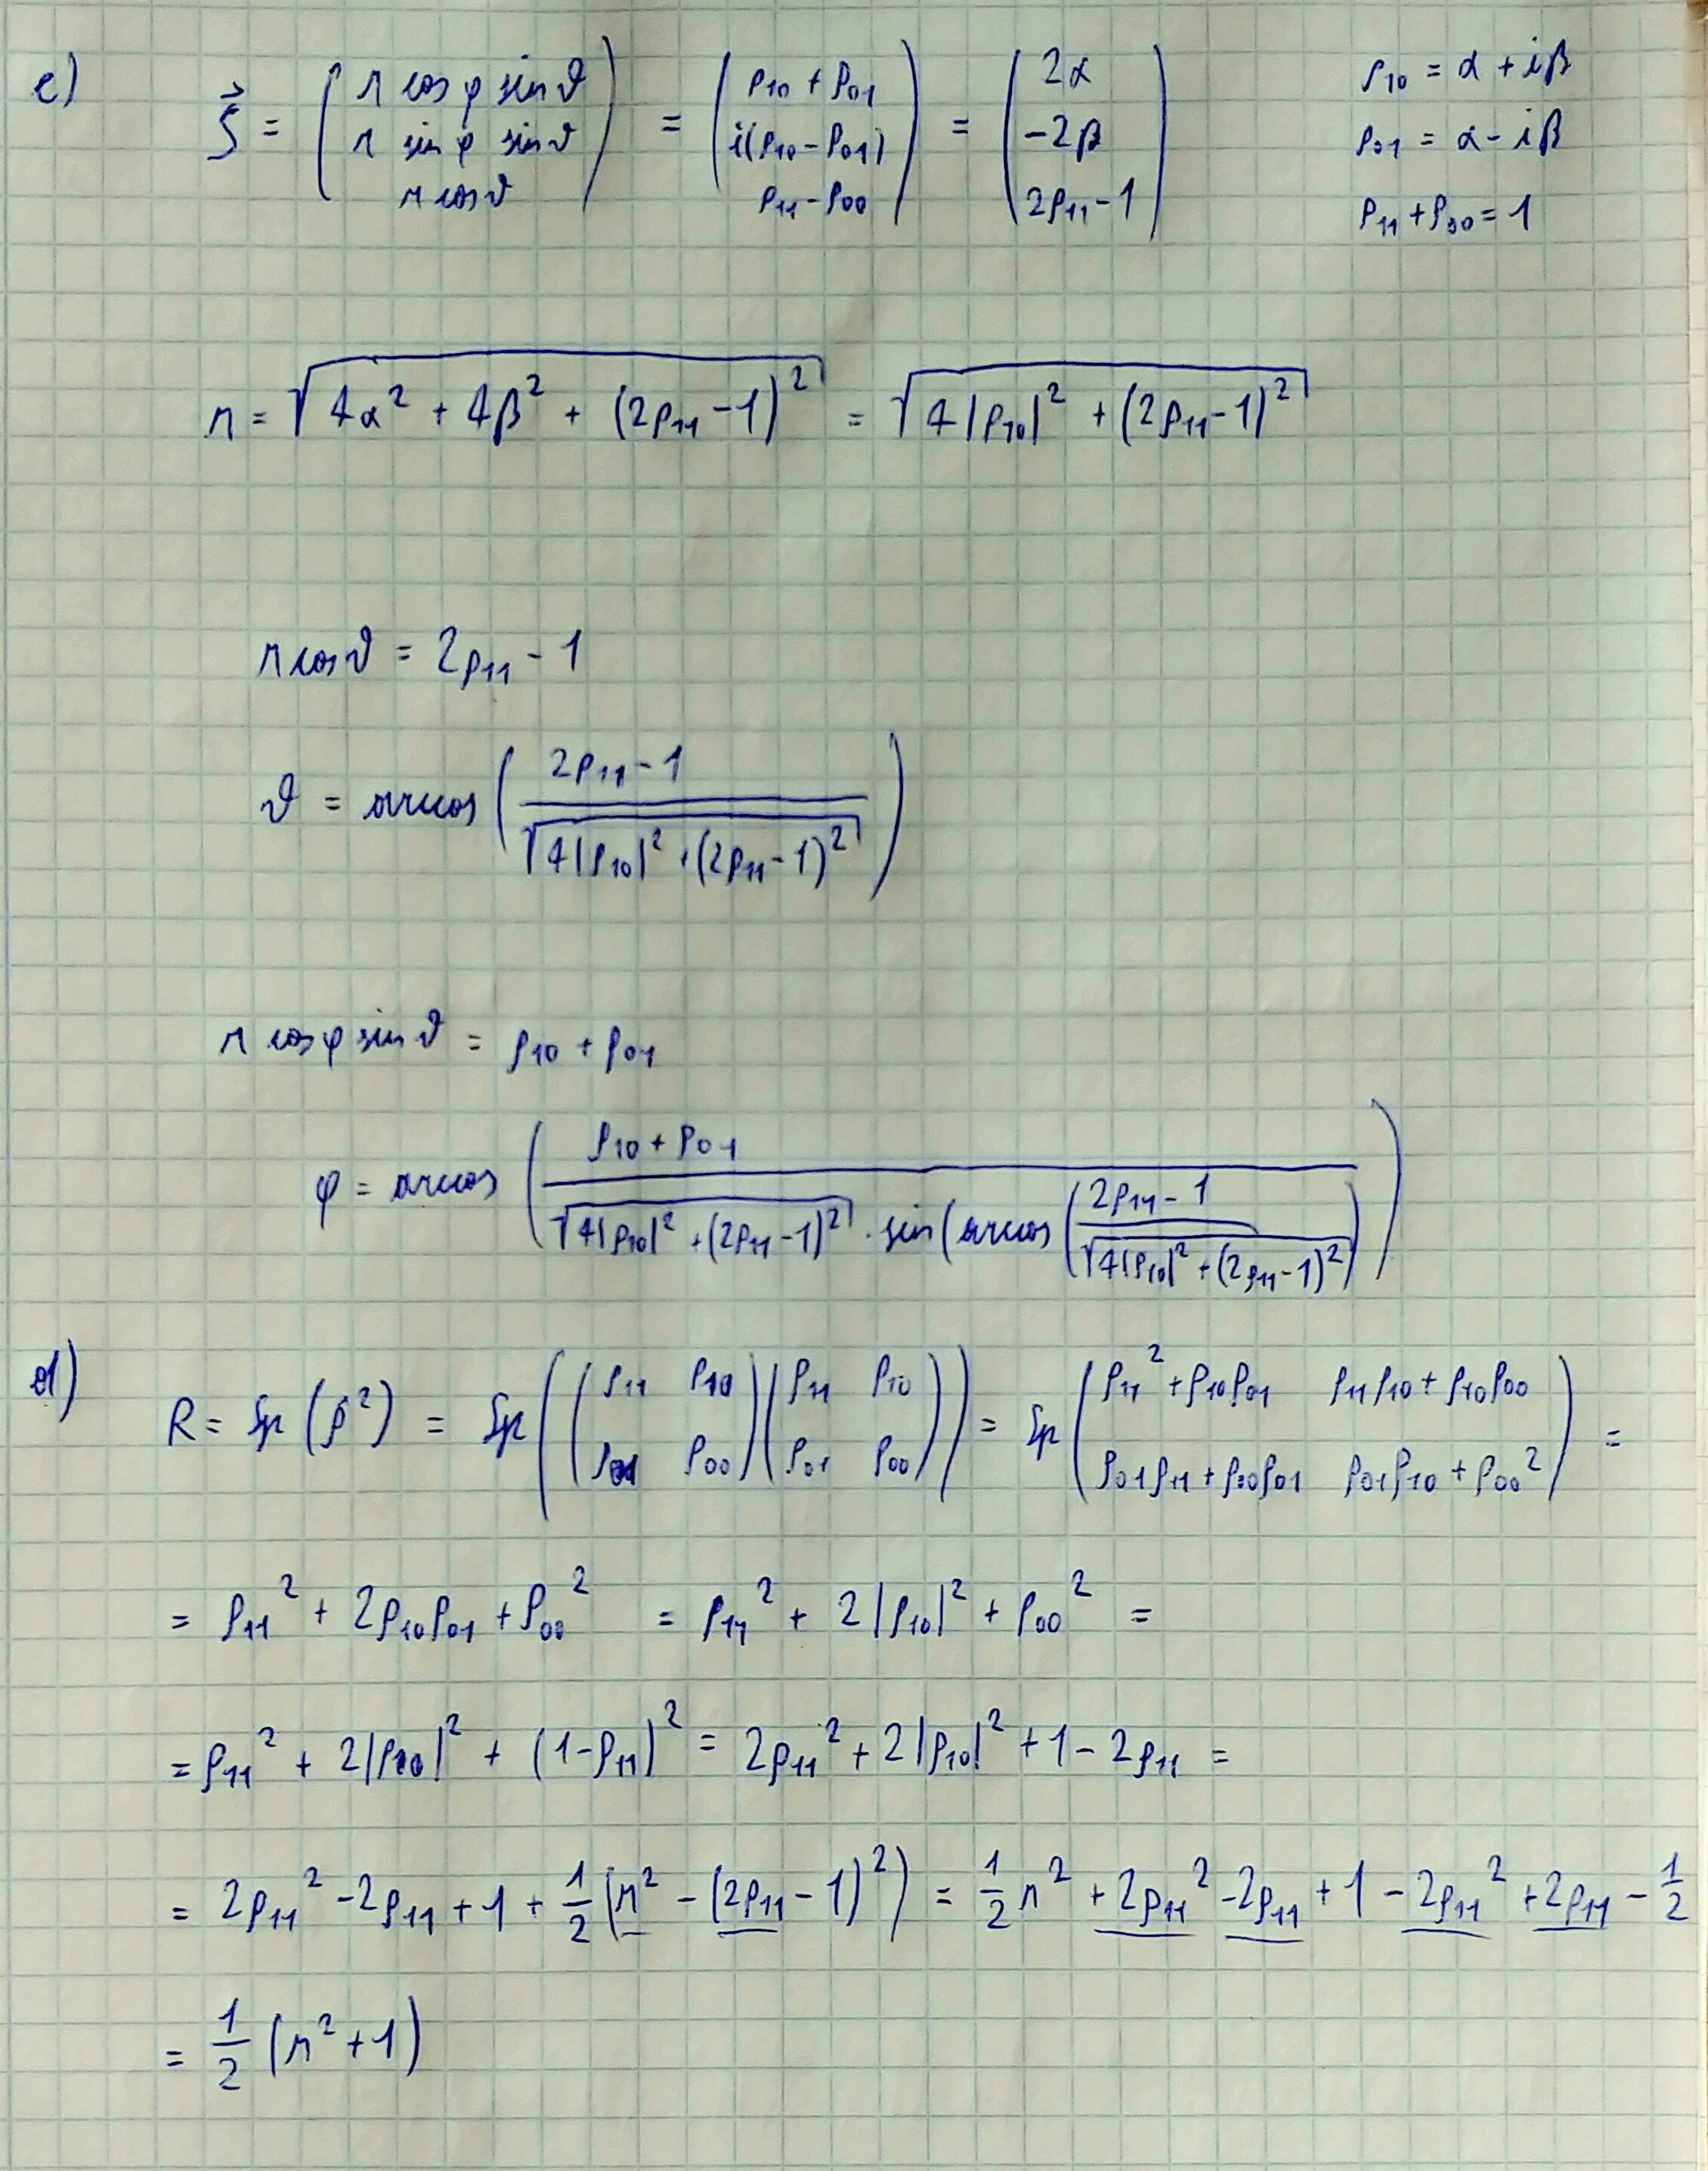 c) \vec{ζ} = \begin{pmatrix} r cos φ sin ϑ \\ r sin φ sin ϑ \\ r cos ϑ \end{pmatrix} = \begin{pmatrix} ρ_{10} + ρ_{01} \\ i(ρ_{10} - ρ_{01}) \\ ρ_{11} - ρ_{00} \end{pmatrix} = \begin{pmatrix} 2α \\ -2β \\ 2ρ_{11} - 1 \end{pmatrix}
ρ_{10} = α + iβ
ρ_{01} = α - iβ
ρ_{11} + ρ_{00} = 1
r = \sqrt{4α^2 + 4β^2 + (2ρ_{11} - 1)^2} = \sqrt{4|ρ_{10}|^2 + (2ρ_{11} - 1)^2}
r cos ϑ = 2ρ_{11} - 1
ϑ = arccos \left( \frac{2ρ_{11} - 1}{\sqrt{4|ρ_{10}|^2 + (2ρ_{11} - 1)^2}} \right)
r cos φ sin ϑ = ρ_{10} + ρ_{01}
φ = arccos \left( \frac{ρ_{10} + ρ_{01}}{\sqrt{4|ρ_{10}|^2 + (2ρ_{11} - 1)^2} · sin(arccos \left( \frac{2ρ_{11} - 1}{\sqrt{4|ρ_{10}|^2 + (2ρ_{11} - 1)^2}} \right)} \right)
d) R = Sp (\hat{ρ}^2) = Sp \left( \begin{pmatrix} ρ_{11} & ρ_{10} \\ ρ_{01} & ρ_{00} \end{pmatrix} \begin{pmatrix} ρ_{11} & ρ_{10} \\ ρ_{01} & ρ_{00} \end{pmatrix} \right) = Sp \begin{pmatrix} ρ_{11}^2 + ρ_{10}ρ_{01} & ρ_{11}ρ_{10} + ρ_{10}ρ_{00} \\ ρ_{01}ρ_{11} + ρ_{00}ρ_{01} & ρ_{01}ρ_{10} + ρ_{00}^2 \end{pmatrix} =
= ρ_{11}^2 + 2ρ_{10}ρ_{01} + ρ_{00}^2 = ρ_{11}^2 + 2|ρ_{10}|^2 + ρ_{00}^2 =
= ρ_{11}^2 + 2|ρ_{10}|^2 + (1 - ρ_{11})^2 = 2ρ_{11}^2 + 2|ρ_{10}|^2 + 1 - 2ρ_{11} =
= 2ρ_{11}^2 - 2ρ_{11} + 1 + \frac{1}{2}(r^2 - (2ρ_{11} - 1)^2) = \frac{1}{2} r^2 + 2ρ_{11}^2 - 2ρ_{11} + 1 - 2ρ_{11}^2 + 2ρ_{11} - \frac{1}{2}
= \frac{1}{2} (r^2 + 1)